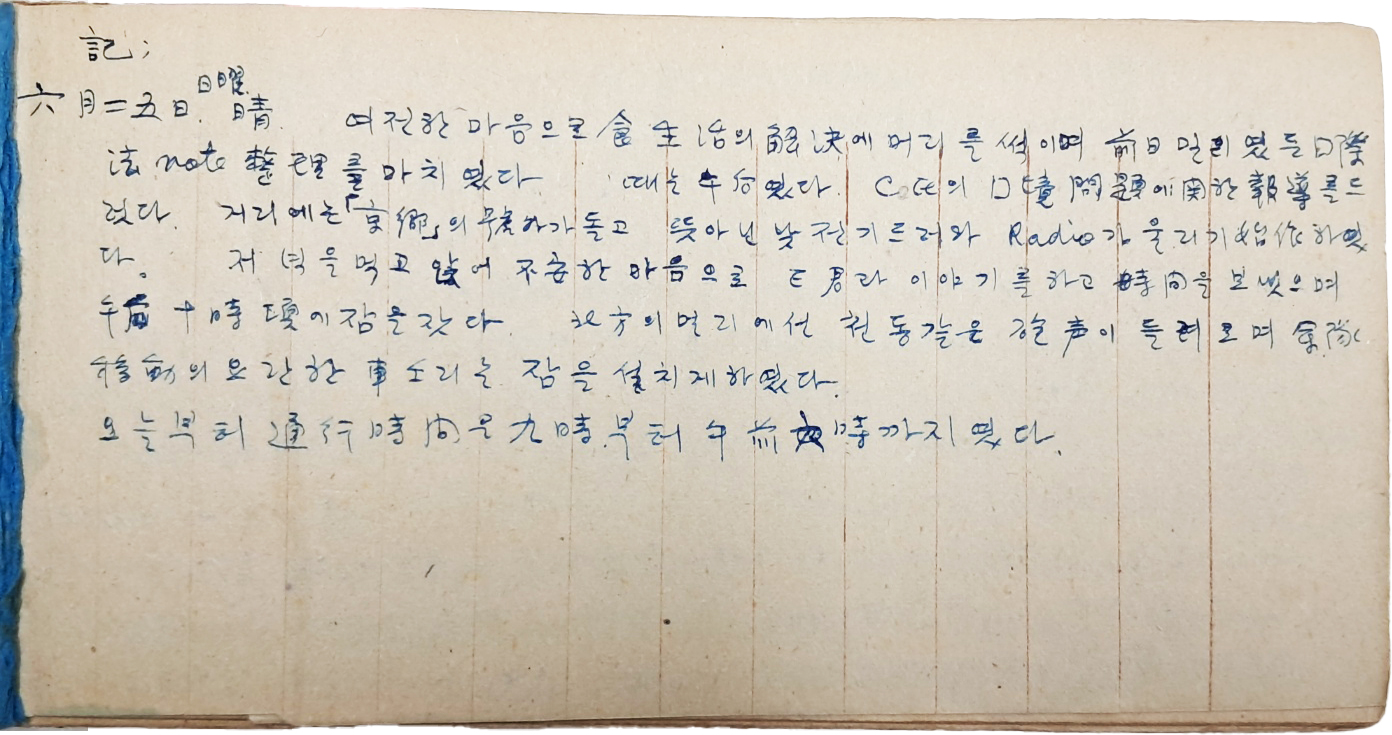 記;
六月二五日. 日曜. 晴. 여전한 마음으로 食生活의 解決에 머리를 썩이며 前日 밀리였든 囗際
法 note 整理를 마치였다. 때는 午后였다. 의 囗境問題에 関한 報導를 드
렀다. 거리에는「京鄕」의 号外가 돌고 뜻아닌 낮전기 드러와 Radio가 울리기 始作하였
다. 저녁을 먹고 앉어 不安한 마음으로 E君과 이야기를 하고 時間을 보냇으며
午後 十時 頃에 잠을 잣다. 北方의 멀리에선 천동같은 砲声이 들려오며 軍隊
移動의 요란한 車소리는 잠을 설치게 하였다.
오늘부터 通行時間은 九時부터 午前 六時까지였다.